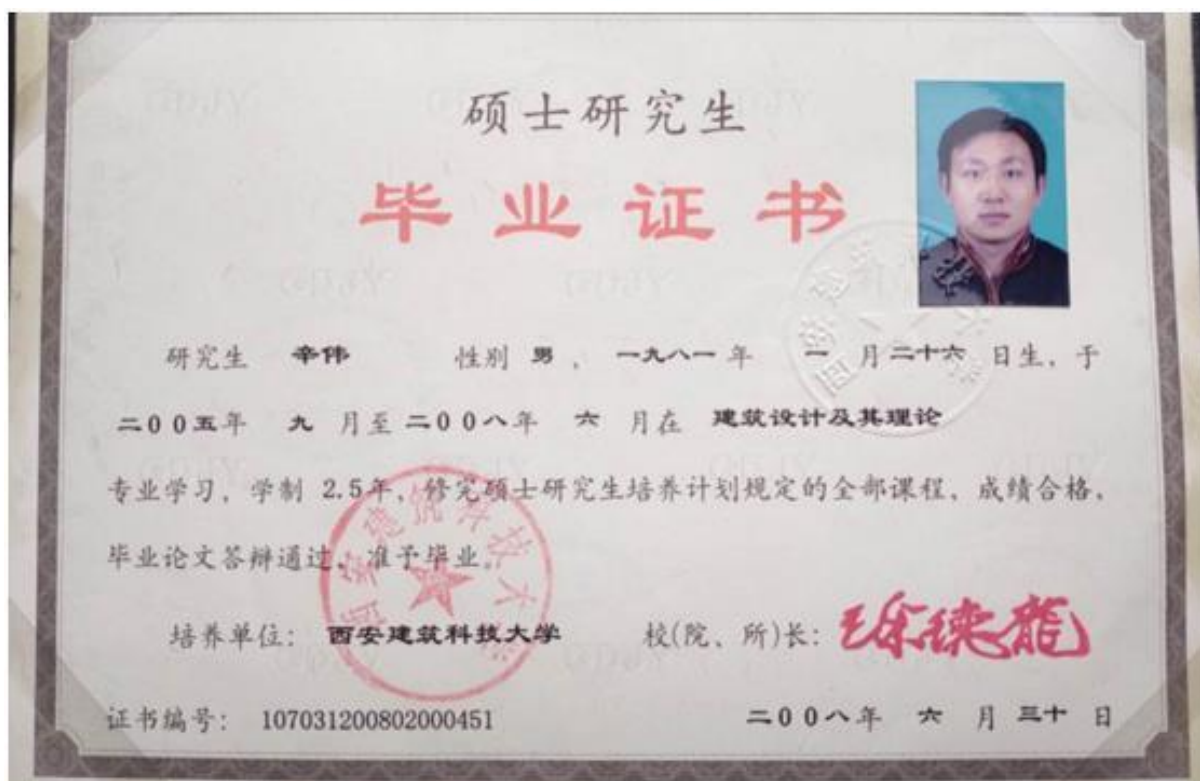 硕士研究生
毕业证书
研究生 辛伟 性别 男，一九八一年 一月二十六日生，于
二00五年 九月至二00八年 六月在 建筑设计及其理论
专业学习，学制 2.5年，修完硕士研究生培养计划规定的全部课程，成绩合格，
毕业论文答辩通过，准予毕业。
西安建筑科技大学
培养单位：西安建筑科技大学 校(院、所)长：徐德龙
证书编号：107031200802000451 二00八年 六月三十日